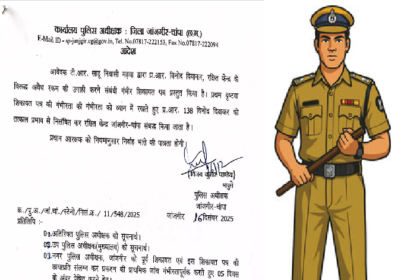 कार्यालय पुलिस अधीक्षक : जिला जांजगीर-चांपा (छ.ग.)
E-Mail ID - sp-janjgir.cg@gov.in, Tel. No.07817-222153, Fax No.07817-222094
आदेश
आवेदक टी.आर. साहू निवासी महुवा द्वारा प्र.आर. विनोद दिवाकर, रक्षित केन्द्र के
विरूद्ध अवैध रकम की उगाही करने संबंधी गंभीर शिकायत पत्र प्रस्तुत किया है। प्रथम दृष्टया
शिकायत पत्र की गंभीरता की गंभीरता को ध्यान में रखते हुए प्र.आर. 138 विनोद दिवाकर को
तत्काल प्रभाव से निलंबित कर रक्षित केन्द्र जांजगीर-चांपा संबद्ध किया जाता है।
प्रधान आरक्षक को नियमानुसार निर्वाह भत्ते की पात्रता होगी।
(विजय कुमार पाण्डेय)
भापुसे
पुलिस अधीक्षक
जांजगीर-चांपा
जांजगीर 16 दिसम्बर 2025
11/548/2025
अतिरिक्त पुलिस अधीक्षक को सूचनार्थ।
उप पुलिस अधीक्षक(मुख्यालय) को सूचनार्थ।
पुलिस अधीक्षक, जांजगीर की पूर्व शिकायत एवं इस शिकायत पत्र की
छायाप्रति संलग्न कर प्रकरण की प्राथमिक जांच गंभीरतापूर्वक करते हुए 05 दिवस